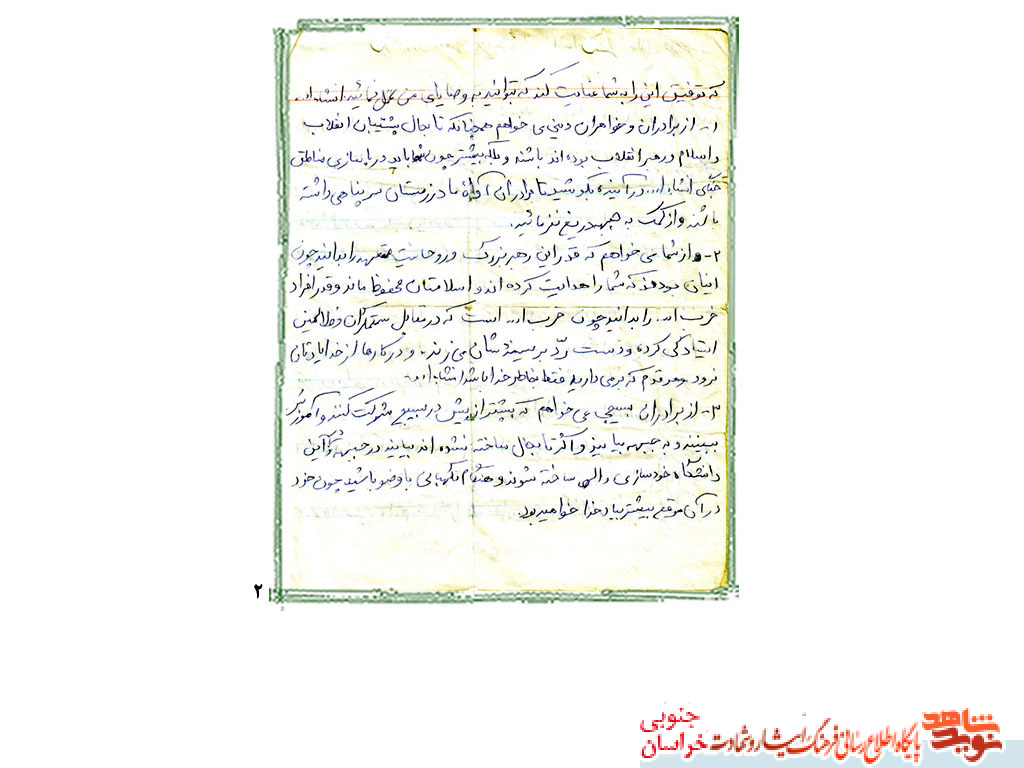 که توفیق این را به شما عنایت کند که بتوانید به وصایای من عمل نمائید انشاءا...
۱- از برادران و خواهران دینی می خواهم همچنانکه تا بحال پشتیبان انقلاب
و اسلام و رهبر انقلاب بوده اند باشند و بلکه بیشتر چون شما باید در بازسازی مناطق
جنگی انشاءا... در آینده بکوشید تا برادران آواره ما در زمستان سرپناهی داشته
باشند و از کمک به جبهه دریغ نفرمائید.
۲- از شما می خواهم که قدر این رهبر بزرگ و روحانیت متعهد را بدانید چون
اینان بودند که شما را هدایت کرده اند و اسلامتان محفوظ ماند و قدر افراد
حزب ا... را بدانید چون حزب ا... است که در مقابل ستمگران و ظالمین
ایستادگی کرده و دست ردّ بر سینه شان می زنند. و در کارها از خدا یادتان
نرود و هر قدم که برمی دارید فقط بخاطر خدا باشد انشاءا...
۳- از برادران بسیجی می خواهم که بیشتر از پیش در بسیج شرکت کنند و آموزش
ببینند و به جبهه بیایند و اگر تا بحال ساخته نشده اند بیایند در جبهه و در این
دانشگاه خودسازی و الهی ساخته شوند و هنگام نگهبانی با وضو باشید چون خود
در آن موقع بیشتر بیاد خدا خواهید بود.
۲
نوید شاهد
پایگاه اطلاع رسانی فرهنگ ایثار و شهادت
جنوبی
خراسان